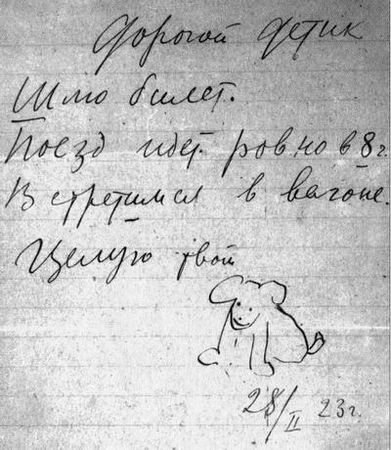 Дорогой Детик
Шлю билет.
Поезд идет ровно в 8 г.
Встретимся в вагоне.
Целую твой
28/II 23 г.